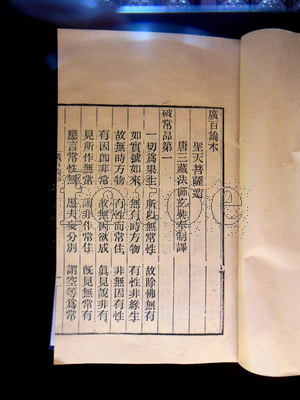 廣百論本
聖天菩薩造
唐三藏法師玄奘奉制譯
破常品第一
一切爲果生 所以無常性 故除佛無有
如實號如來 無有時方物 有性非緣生
故無時方物 有性而常住 非無因有性
有因卽非常 故無因欲成 眞見說非有
見所作無常 謂非作常住 旣見無常有
應言常性無 愚夫妄分別 謂空等爲常